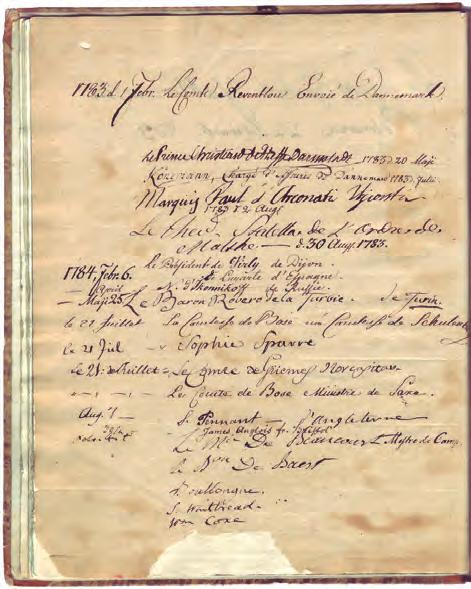 1783 d 1 Febr. Le Comte Reventlou Envoié de Dannemark.
Le Prince Christian de Hesse Darmstadt 1783 20 Maji
Chargé d'affaires de Dannemarc 1783 Julii.
Marquis Paul d'Arconati Visconti
1783 d 2 Aug.
Le Statella de L'Ordre de
Malthe — d. 30 Aug. 1783.
1784. Febr. 6. Le Président de Virly de Dijon.
— April d'Espagne
de Russie.
— Maji 25. Le Baron Rovero de la Turbie. de Turin.
le 21 Juillet La Comtesse de Bose née Comtesse de Schulenb
le 21 Jul — Sophie Sparre
Le 21. de Juillet — Le Comte de
Le Comte de Bose Ministre de Saxe.
Aug. 1 — S. Pennant d'Angleterre
James Anglois fr. Bristol
Le De Mestre de Camp
Le Bon De Baert
Boullongne.
S. Whitbread.
Wm Coxe